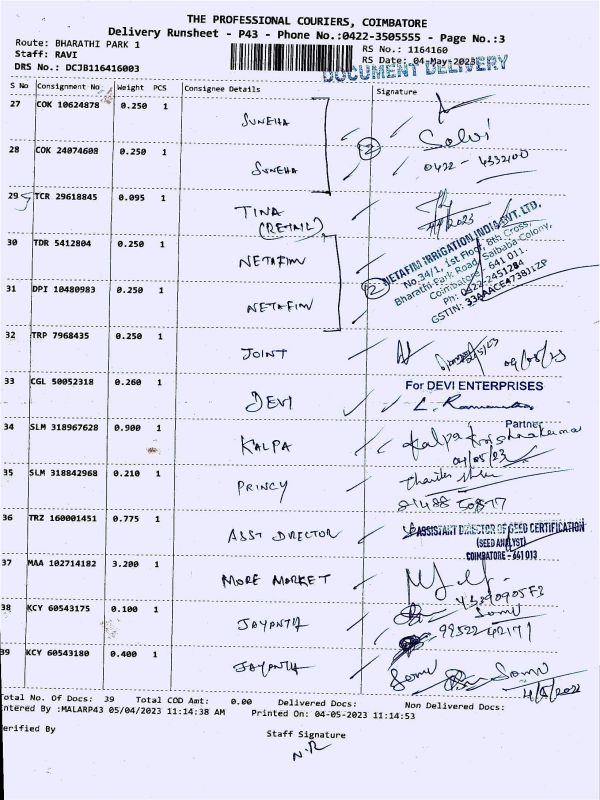 THE PROFESSIONAL COURIERS, COIMBATORE
Delivery Runsheet - P43 - Phone No.:0422-3505555 - Page No.:3
Route: BHARATHI PARK 1 RS No.: 1164160
Staff: RAVI RS Date: 04-May-2023
DRS No.: DCJB116416003 DOCUMENT DELIVERY
S No Consignment No Weight PCS Consignee Details Signature
27 COK 10624878 0.250 1 SUNEHA
Selvi
28 COK 24074608 0.250 1 SUNEHA 2 0422 - 4332400
29 TCR 29618845 0.095 1 TINA
(RETAIL)
30 TDR 5412804 0.250 1 NETAFIM
31 DPI 10480983 0.250 1 NETAFIM 2
NETAFIM IRRIGATION INDIA PVT. LTD.
No.34/1, 1st Floor, 8th Cross,
Bharathi Park Road, Saibaba Colony,
Coimbatore - 641 011.
Ph: 0422-2451284
GSTIN: 33AAACE4738J1ZP
32 TRP 7968435 0.250 1 JOINT 04/05/23
33 CGL 50052318 0.260 1 DEVI For DEVI ENTERPRISES
Partner
34 SLM 318967628 0.900 1 KALPA Kalpa Krishnakumar
04/05/23
35 SLM 318842968 0.210 1 PRINCY
36 TRZ 160001451 0.775 1 ASST DIRECTOR ASSISTANT DIRECTOR OF SEED CERTIFICATION
(SEED ANALYST)
COIMBATORE - 641 013
37 MAA 102714182 3.200 1 MORE MARKET
38 KCY 60543175 0.100 1 JAYANTH Somu
99522 42171
39 KCY 60543180 0.400 1 JAYANTH Somu Somu
Total No. Of Docs: 39 Total COD Amt: 0.00 Delivered Docs: Non Delivered Docs:
Entered By :MALARP43 05/04/2023 11:14:38 AM Printed On: 04-05-2023 11:14:53
Verified By Staff Signature
N.R